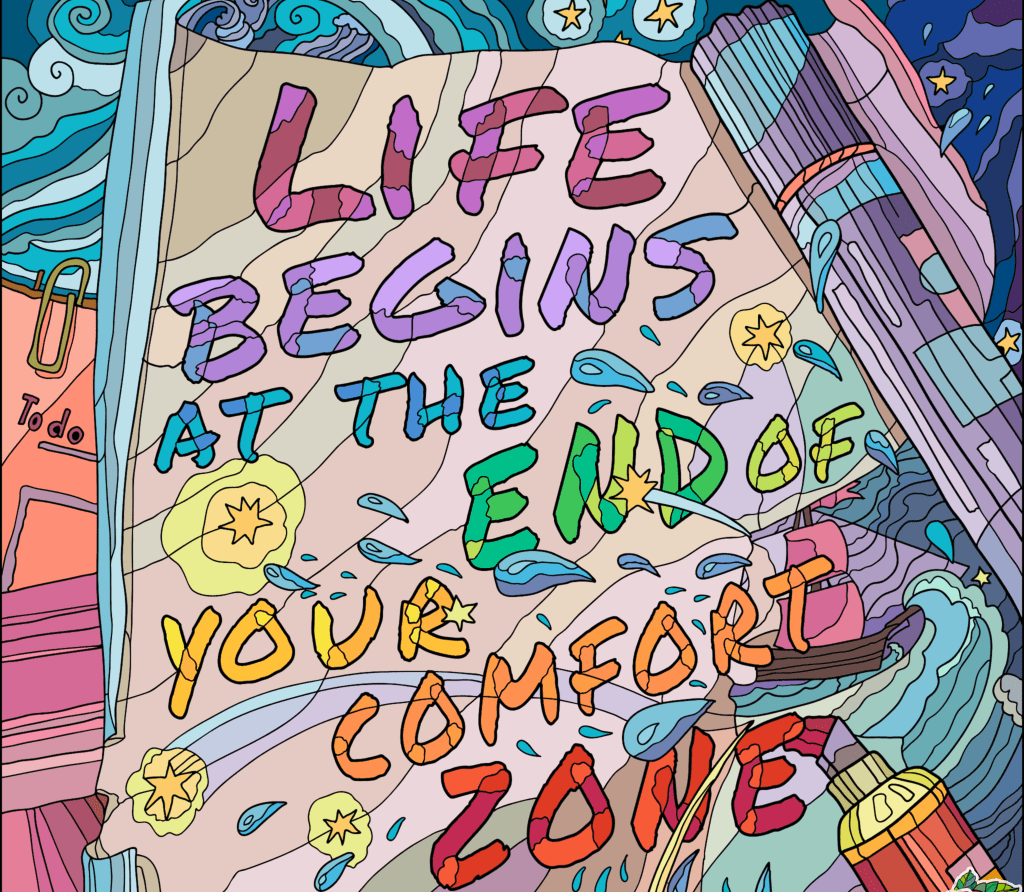 LIFE
BEGINS
AT THE
END OF
YOUR
COMFORT
ZONE
To do